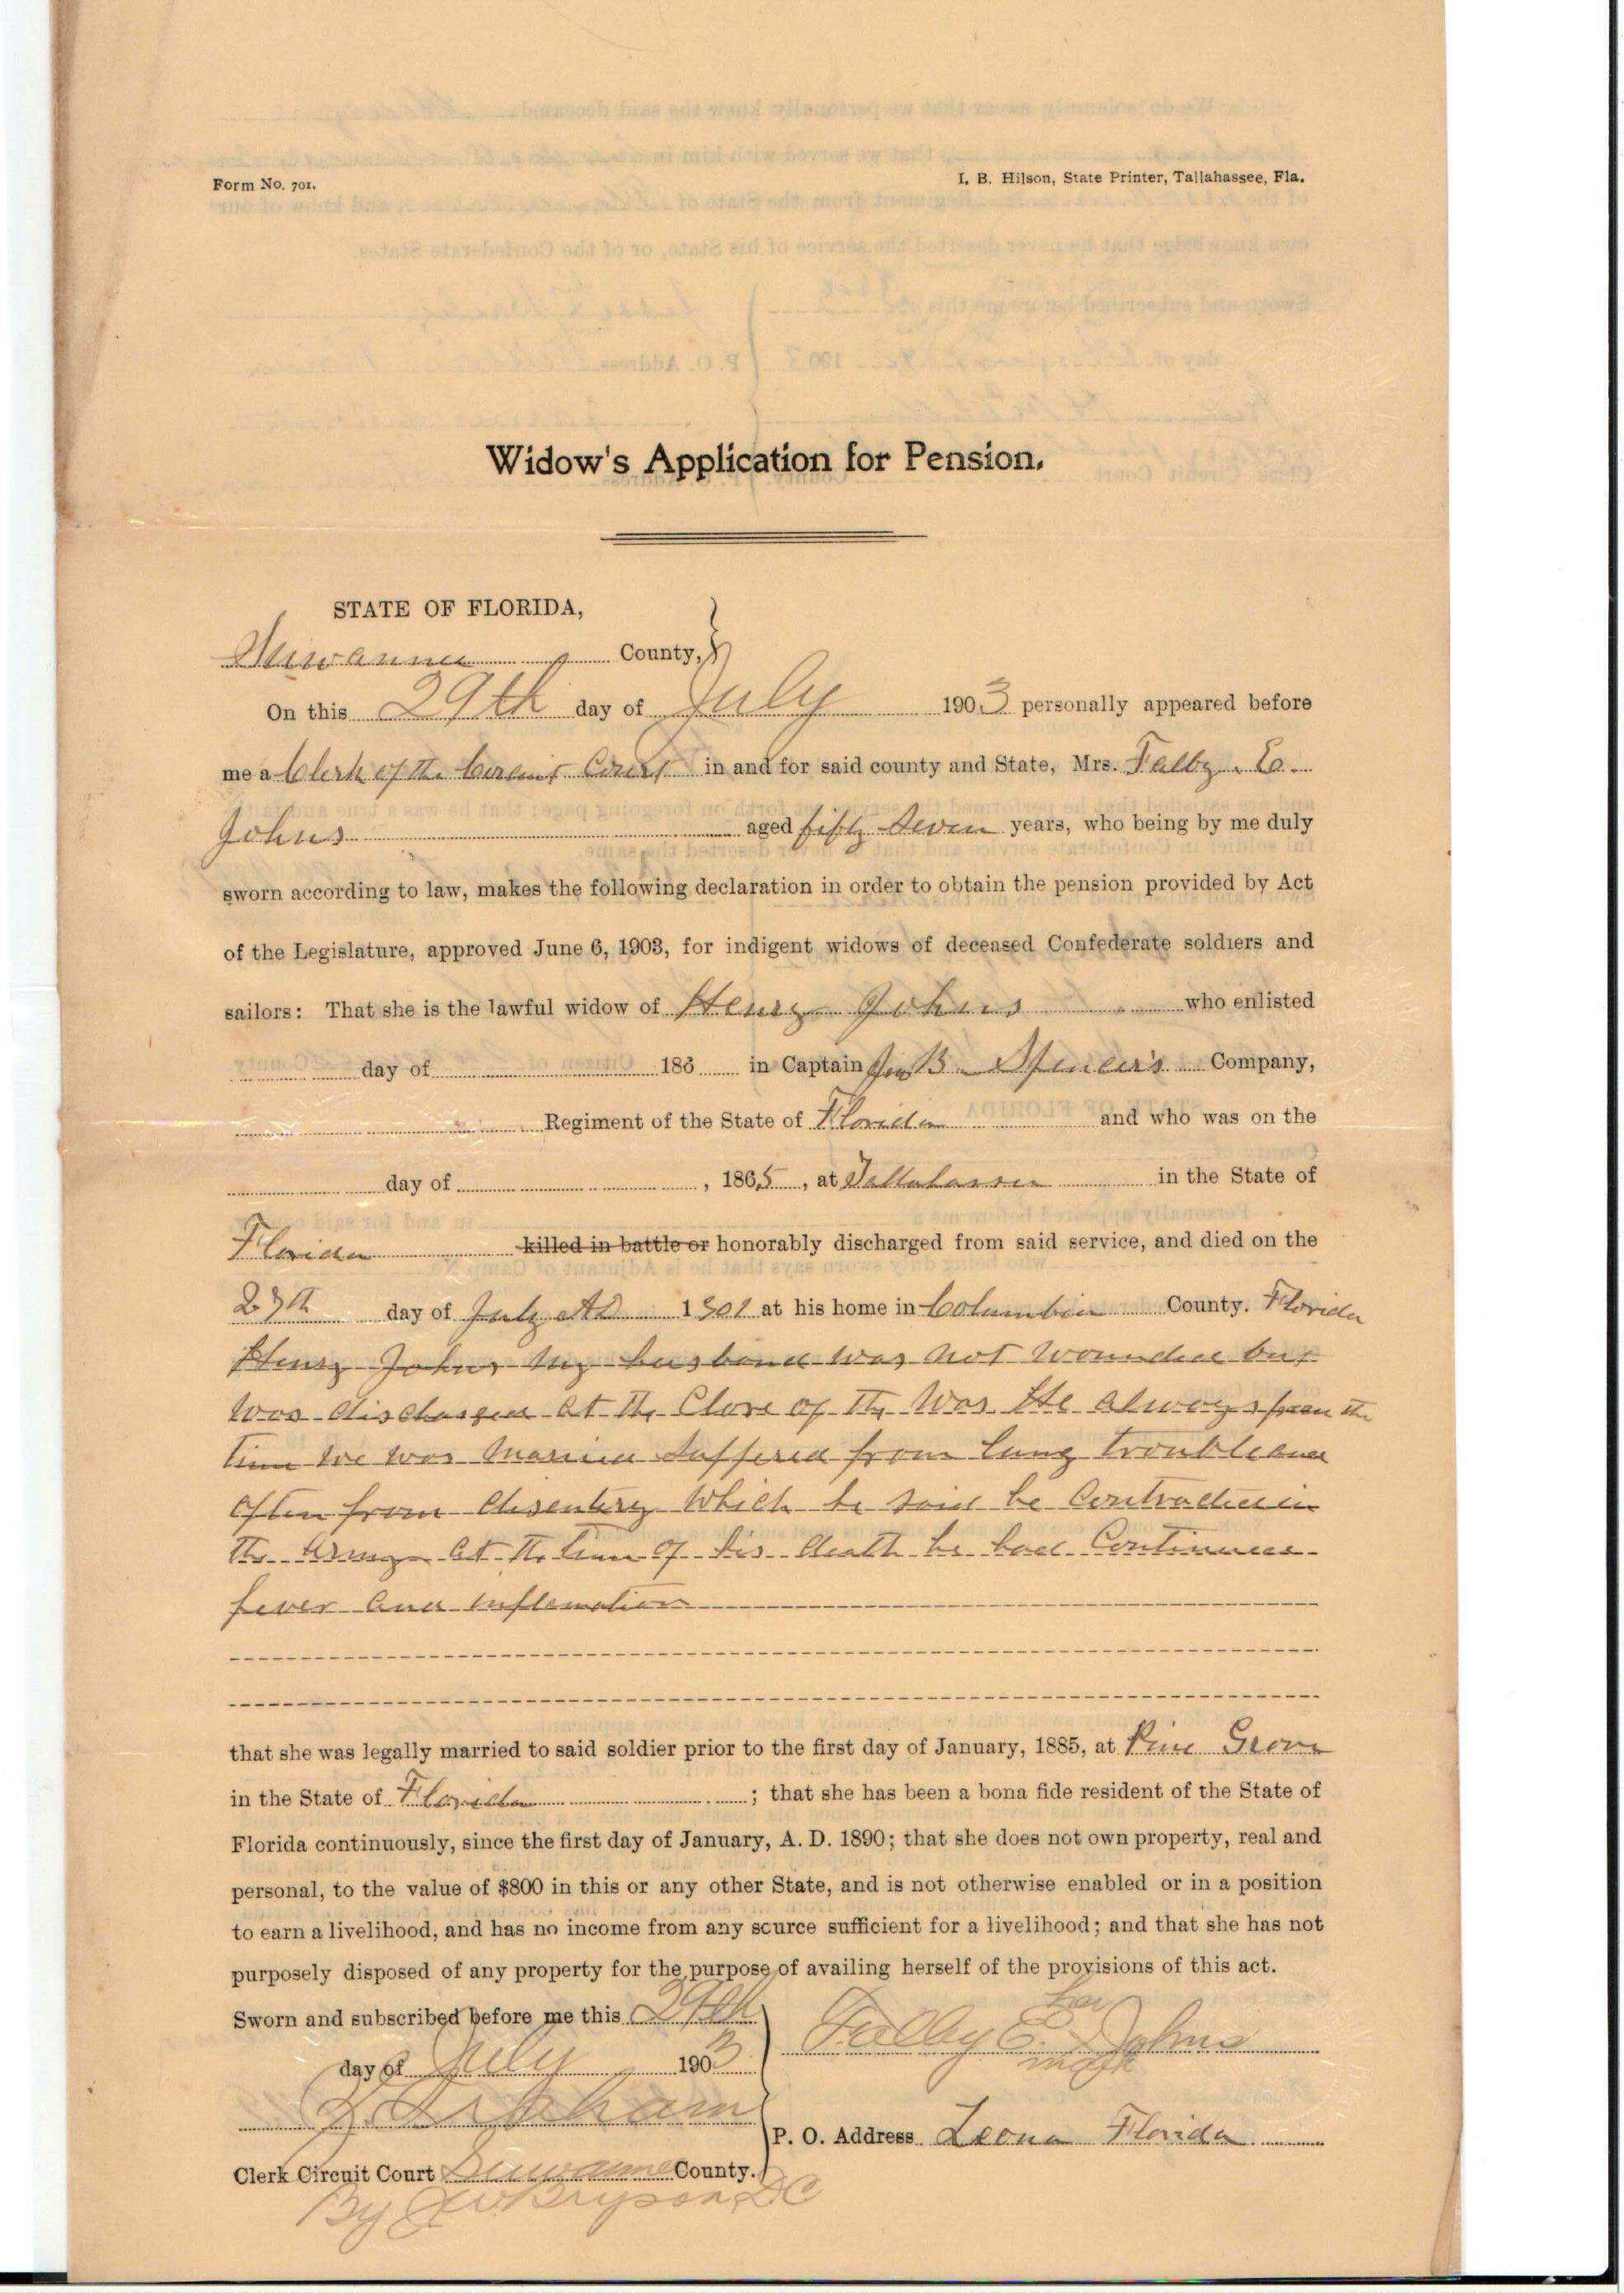 Form No. 701.
I. B. Hilson, State Printer, Tallahassee, Fla.
Widow's Application for Pension.
STATE OF FLORIDA,
Suwannee County,
On this 29th day of July 1903 personally appeared before
me a Clerk of the Circuit Court in and for said county and State, Mrs. Falby E.
Johns aged fifty seven years, who being by me duly
sworn according to law, makes the following declaration in order to obtain the pension provided by Act
of the Legislature, approved June 6, 1903, for indigent widows of deceased Confederate soldiers and
sailors: That she is the lawful widow of Henry Johns who enlisted
day of 186 in Captain B Spencer's Company,
Regiment of the State of Florida and who was on the
day of , 1865, at Tallahassee in the State of
Florida killed in battle or honorably discharged from said service, and died on the
day of July AD 1901 at his home in Columbia County. Florida
Henry Johns my husband was not wounded but
was discharged at the Close of the War He always from the
time we was married suffered from lung trouble and
often from disentery which he said he Contracted in
the Army at the time of his death he had Continued
fever and inflamation
that she was legally married to said soldier prior to the first day of January, 1885, at Pine Grove
in the State of Florida ; that she has been a bona fide resident of the State of
Florida continuously, since the first day of January, A. D. 1890; that she does not own property, real and
personal, to the value of $800 in this or any other State, and is not otherwise enabled or in a position
to earn a livelihood, and has no income from any scurce sufficient for a livelihood; and that she has not
purposely disposed of any property for the purpose of availing herself of the provisions of this act.
Sworn and subscribed before me this 29th
day of July 1903
her
Falby E. Johns
mark
P. O. Address Leona Florida
Clerk Circuit Court Suwannee County.
By Bryson DC